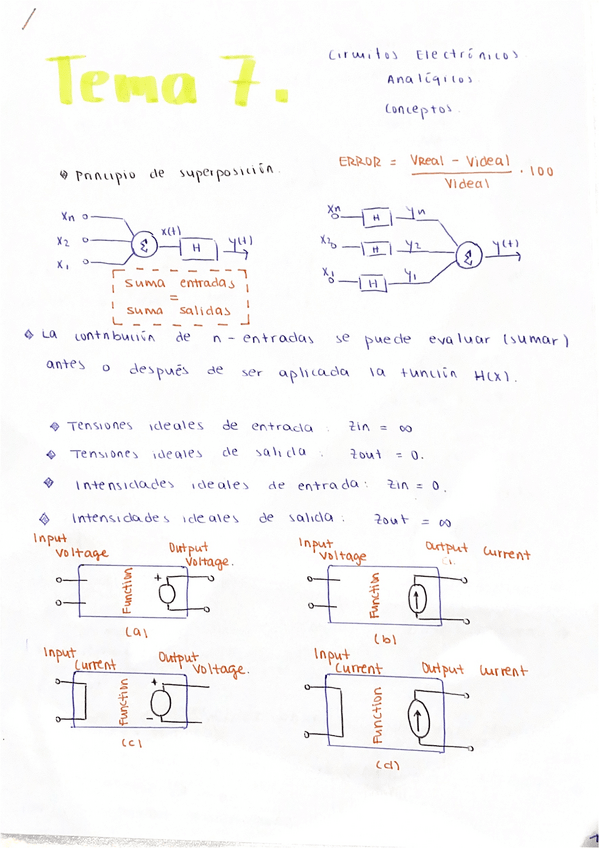 Circuitos Electrónicos
Analógicos
Conceptos.
Tema 7.
Principio de superposición.
ERROR = Vreal - Videal / Videal · 100
Xn
X2
X1
Σ
X(t)
H
y(t)
suma entradas
=
suma salidas
Xn H yn
X2 H y2
X1 H y1
Σ
y(t)
La contribución de n-entradas se puede evaluar (sumar)
antes o después de ser aplicada la función H(X).
Tensiones ideales de entrada : Zin = ∞
Tensiones ideales de salida : Zout = 0.
Intensidades ideales de entrada: Zin = 0.
Intensidades ideales de salida: Zout = ∞
Input Voltage
Output Voltage.
Function
+
(a)
Input Voltage
Output Current
Function
(b)
Input Current
Output Voltage.
Function
+
-
(c)
Input Current
Output Current
Function
(d)